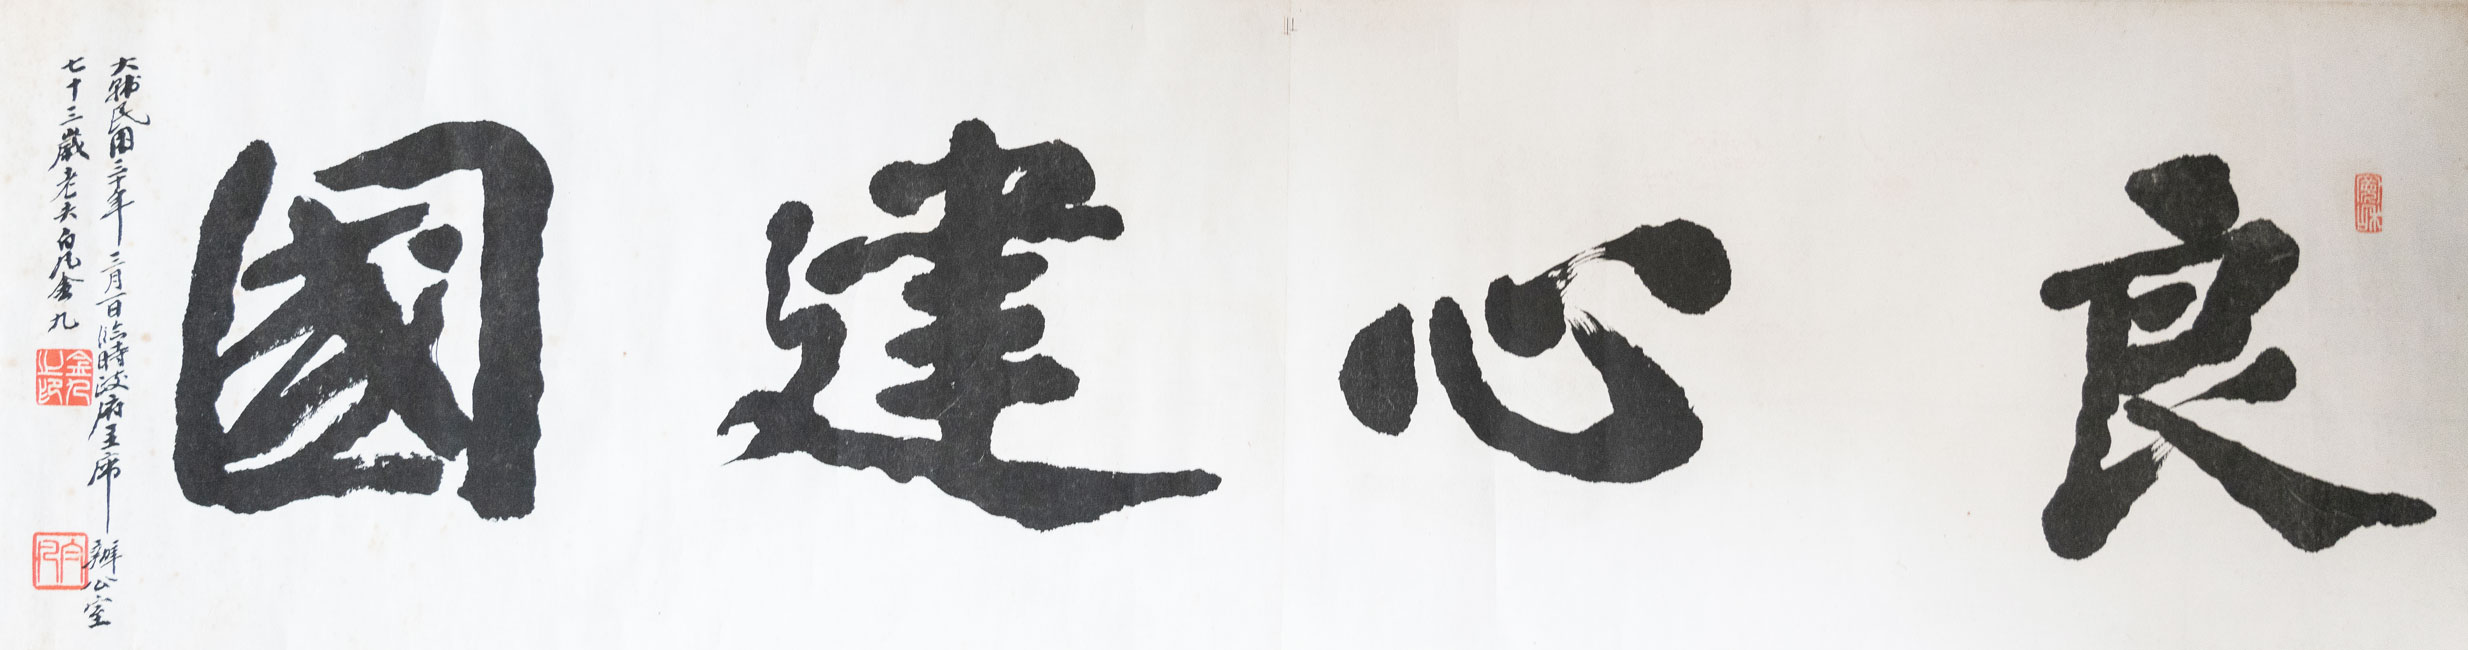 良心建國
大韓民國三十年三月一日臨時政府主席辦公室
七十三歲老夫白凡金九
金九之印
白凡